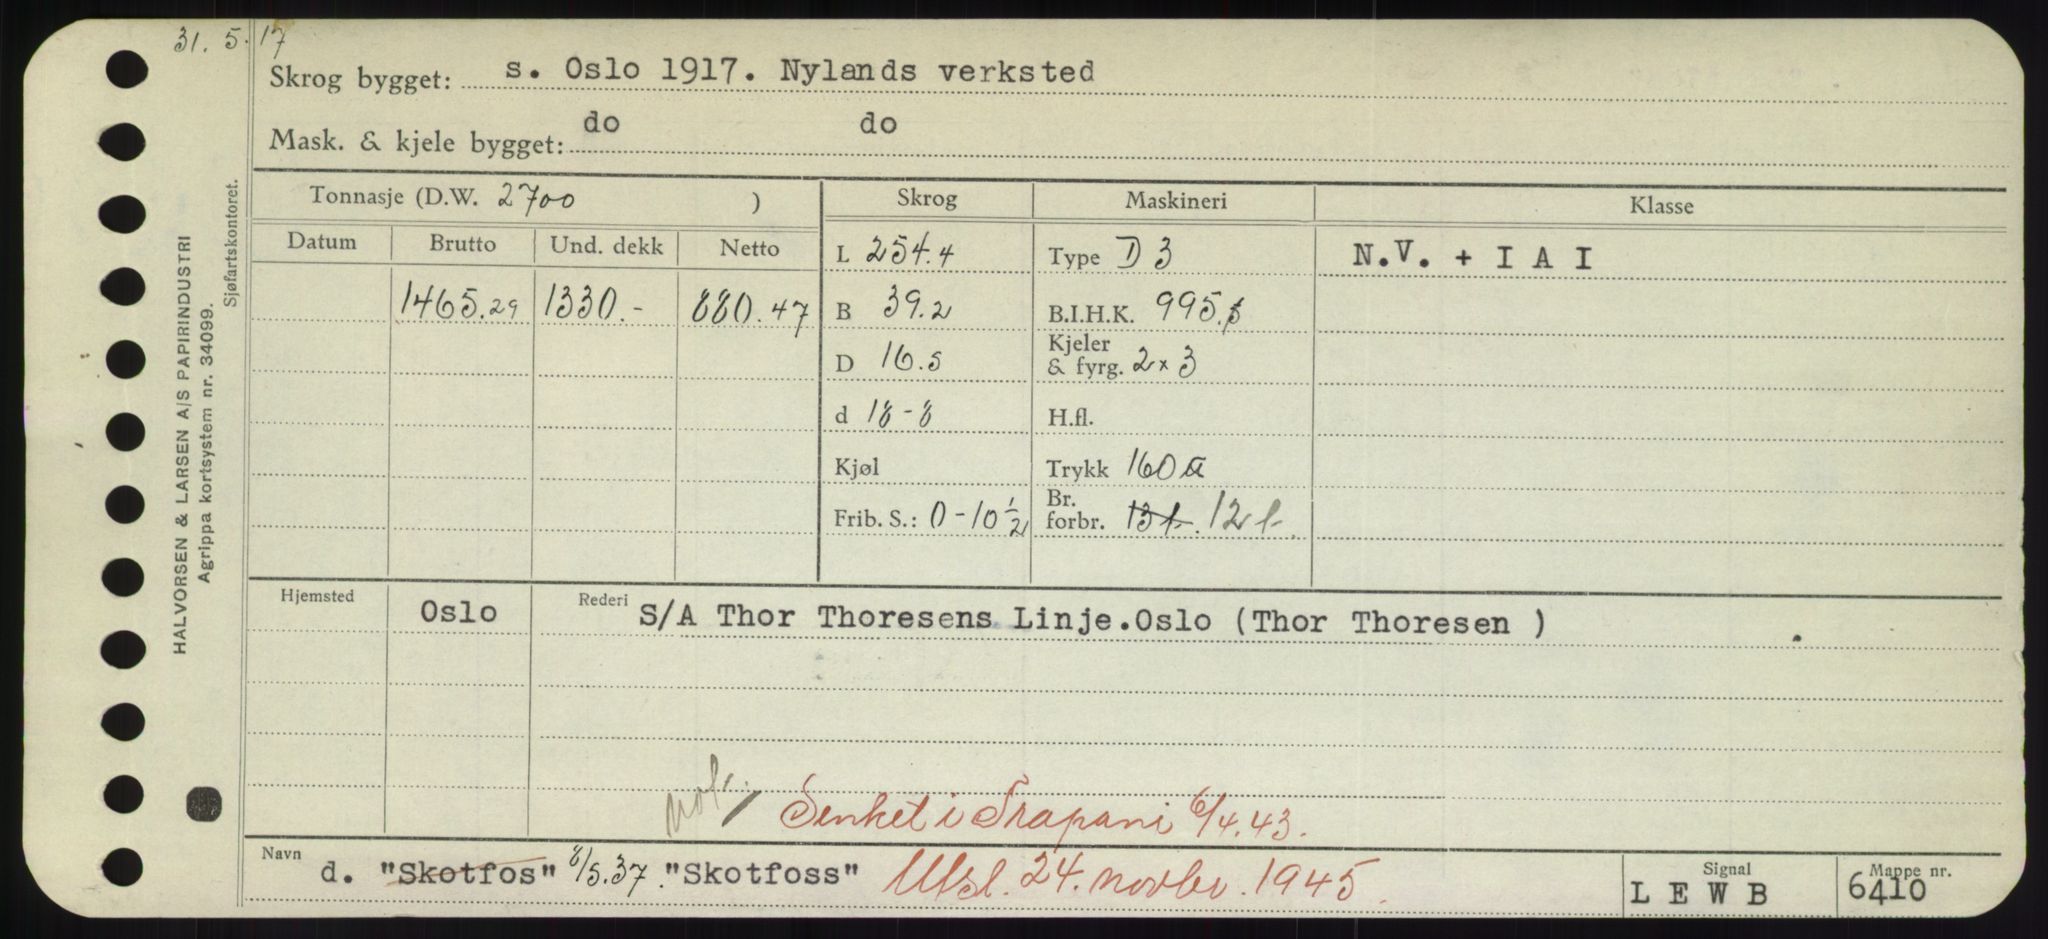 31. 5. 17
Skrog bygget: s. Oslo 1917. Nylands verksted
Mask. & kjele bygget: do do
Tonnasje (D.W. 2700 ) Skrog Maskineri Klasse
Datum Brutto Und. dekk Netto L 254.4 Type D 3 N.V. + I A I
1465.29 1330.- 880.47 B 39.2 B.I.H.K. 995.
D 16.5 Kjeler & fyrg. 2 x 3
d 18-8 H.fl.
Kjøl Trykk 160
Frib. S.: 0-10 1/2 Br. forbr. 13 t. 12 t.
Hjemsted Oslo Rederi S/A Thor Thoresens Linje.Oslo (Thor Thoresen )
Senket i Trapani 6/4.43.
Navn d. "Skotfos" 8/5.37. "Skotfoss" Utsl. 24. novbr. 1945. Signal LEWB Mappe nr. 6410
HALVORSEN & LARSEN A/S PAPIRINDUSTRI
Agrippa kortsystem nr. 34099.
Sjøfartskontoret.